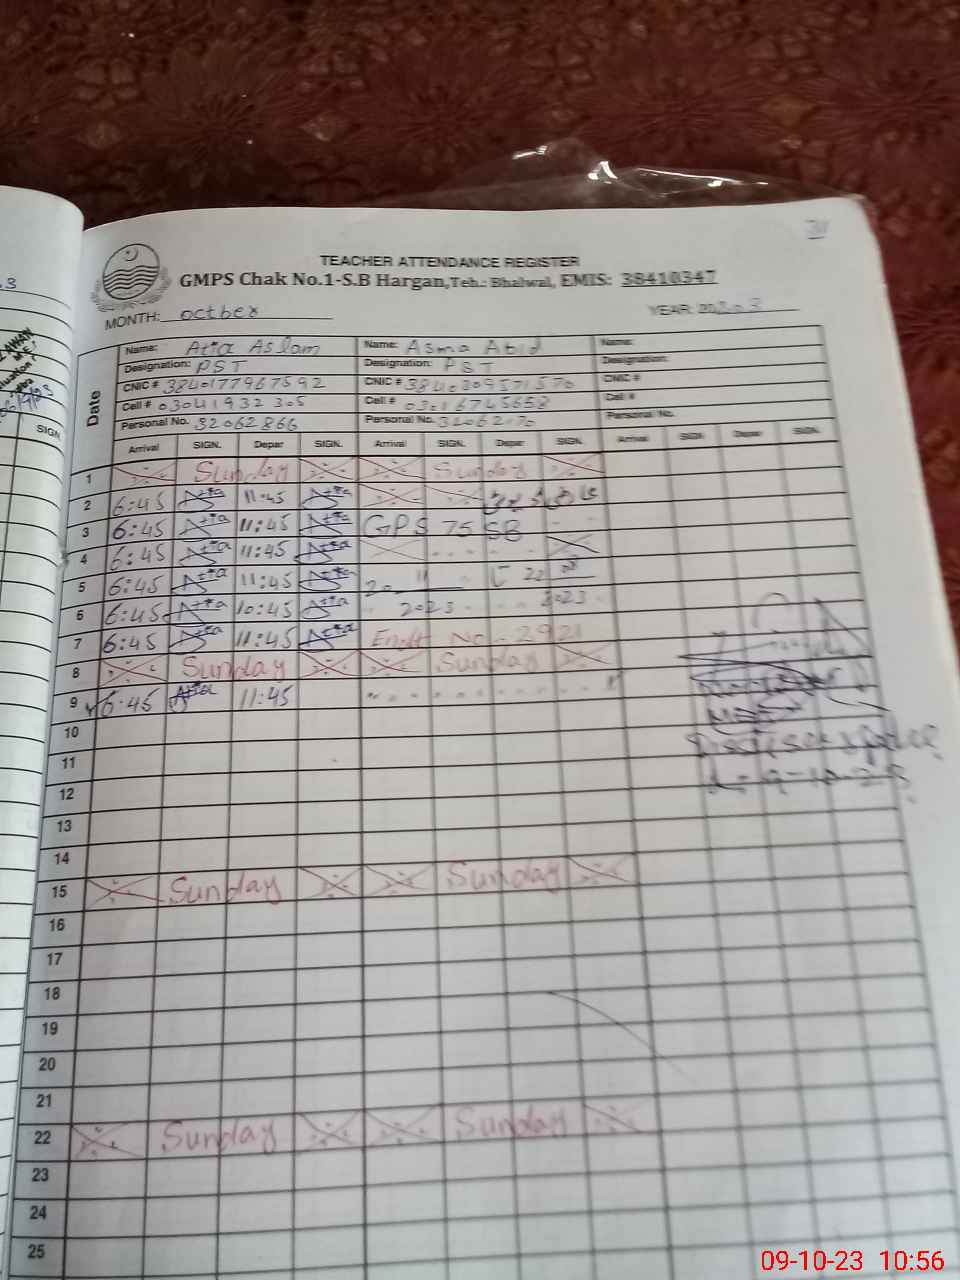 TEACHER ATTENDANCE REGISTER
GMPS Chak No.1-S.B Hargan, Teh.: Bhalwal, EMIS: 38410347
MONTH: octber YEAR: 2023
Date
Name: Atia Aslam Name: Asma Abid Name:
Designation: PST Designation: PST Designation:
CNIC # 3840177967592 CNIC # 3840309571570 CNIC #
Cell # 03041932305 Cell # 03016745658 Cell #
Personal No. 32062866 Personal No. Personal No.
Arrival SIGN. Depar SIGN. Arrival SIGN. Depar SIGN. Arrival SIGN Depar SIGN.
SIGN
1 Sunday Sunday
2 6:45 Atia 11:45 Atia
3 6:45 Atia 11:45 Atia GPS 75 SB
4 6:45 Atia 11:45 Atia
5 6:45 Atia 11:45 Atia 20 11 22
6 6:45 Atia 10:45 Atia 2023 2023
7 6:45 Atia 11:45 Atia Endt No - 2921
8 Sunday Sunday
9 6:45 Atia 11:45
10
11
12
13
14
15 Sunday Sunday
16
17
18
19
20
21
22 Sunday Sunday
23
24
25
09-10-23 10:56